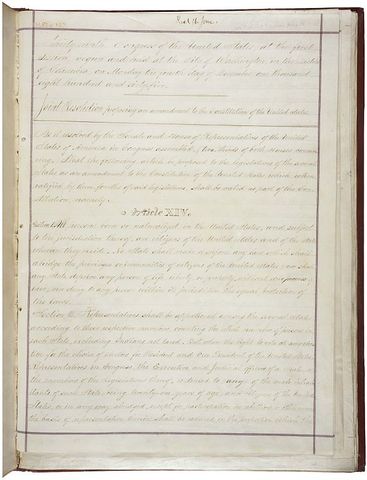 Recd 16 June.
Thirty-ninth Congress of the United States, at the first
session, begun and held at the City of Washington, in the District
of Columbia, on Monday the fourth day of December one thousand
eight hundred and sixty-five.
Joint Resolution proposing an amendment to the Constitution of the United States.
Be it resolved by the Senate and House of Representatives of the United
States of America in Congress assembled, two thirds of both Houses concurring,
That the following article be proposed to the legislatures of the several
States as an amendment to the Constitution of the United States, which, when
ratified by three fourths of said legislatures, shall be valid as part of the Con-
stitution, namely:
Article XIV.
Section 1. All persons born or naturalized in the United States, and subject
to the jurisdiction thereof, are citizens of the United States and of the State
wherein they reside. No State shall make or enforce any law which shall
abridge the privileges or immunities of citizens of the United States; nor shall
any State deprive any person of life, liberty, or property, without due process of law;
nor deny to any person within its jurisdiction the equal protection of
the laws.
Section 2. Representatives shall be apportioned among the several States
according to their respective numbers, counting the whole number of persons in
each State, excluding Indians not taxed. But when the right to vote at any elec-
tion for the choice of electors for President and Vice President of the United States,
Representatives in Congress, the Executive and Judicial officers of a State, or
the members of the Legislature thereof, is denied to any of the male inhab-
itants of such State, being twenty-one years of age, and citizens of the United
States, or in any way abridged, except for participation in rebellion, or other crime,
the basis of representation therein shall be reduced in the proportion which the